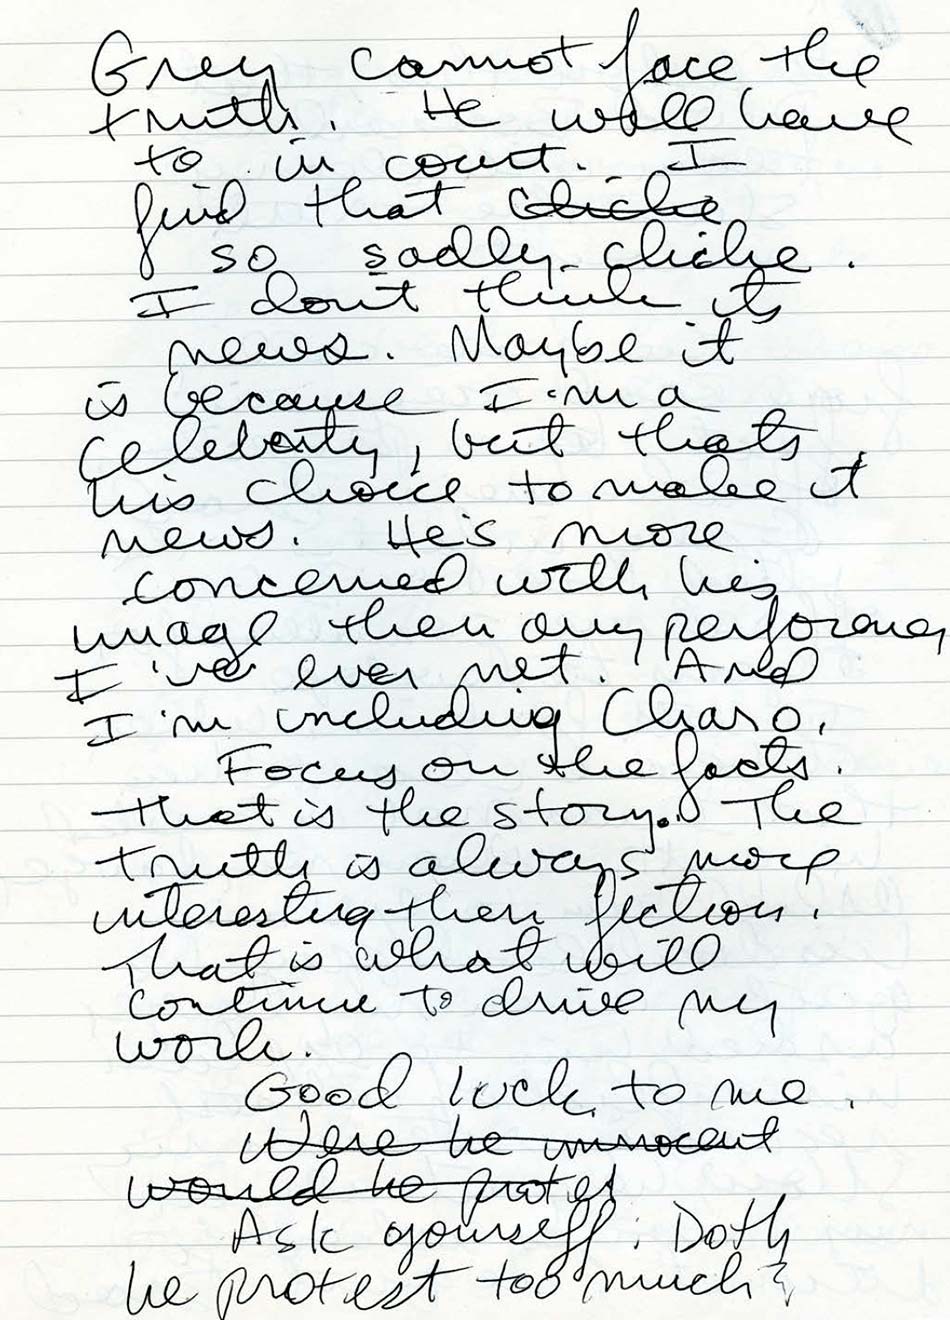 Grey cannot face the
truth. He will have
to in court. I
find that cliche
so sadly cliche.
I dont think its
news. Maybe it
is because I'm a
celebrity, but thats
his choice to make it
news. He's more
concerned with his
image then any performer
I've ever met. And
I'm including Charo.
Focus on the facts.
That is the story. The
truth is always more
interesting then fiction.
That is what will
continue to drive my
work.
Good luck to me.
Were he innocent
would he protest
Ask yourself: Doth
he protest too much?